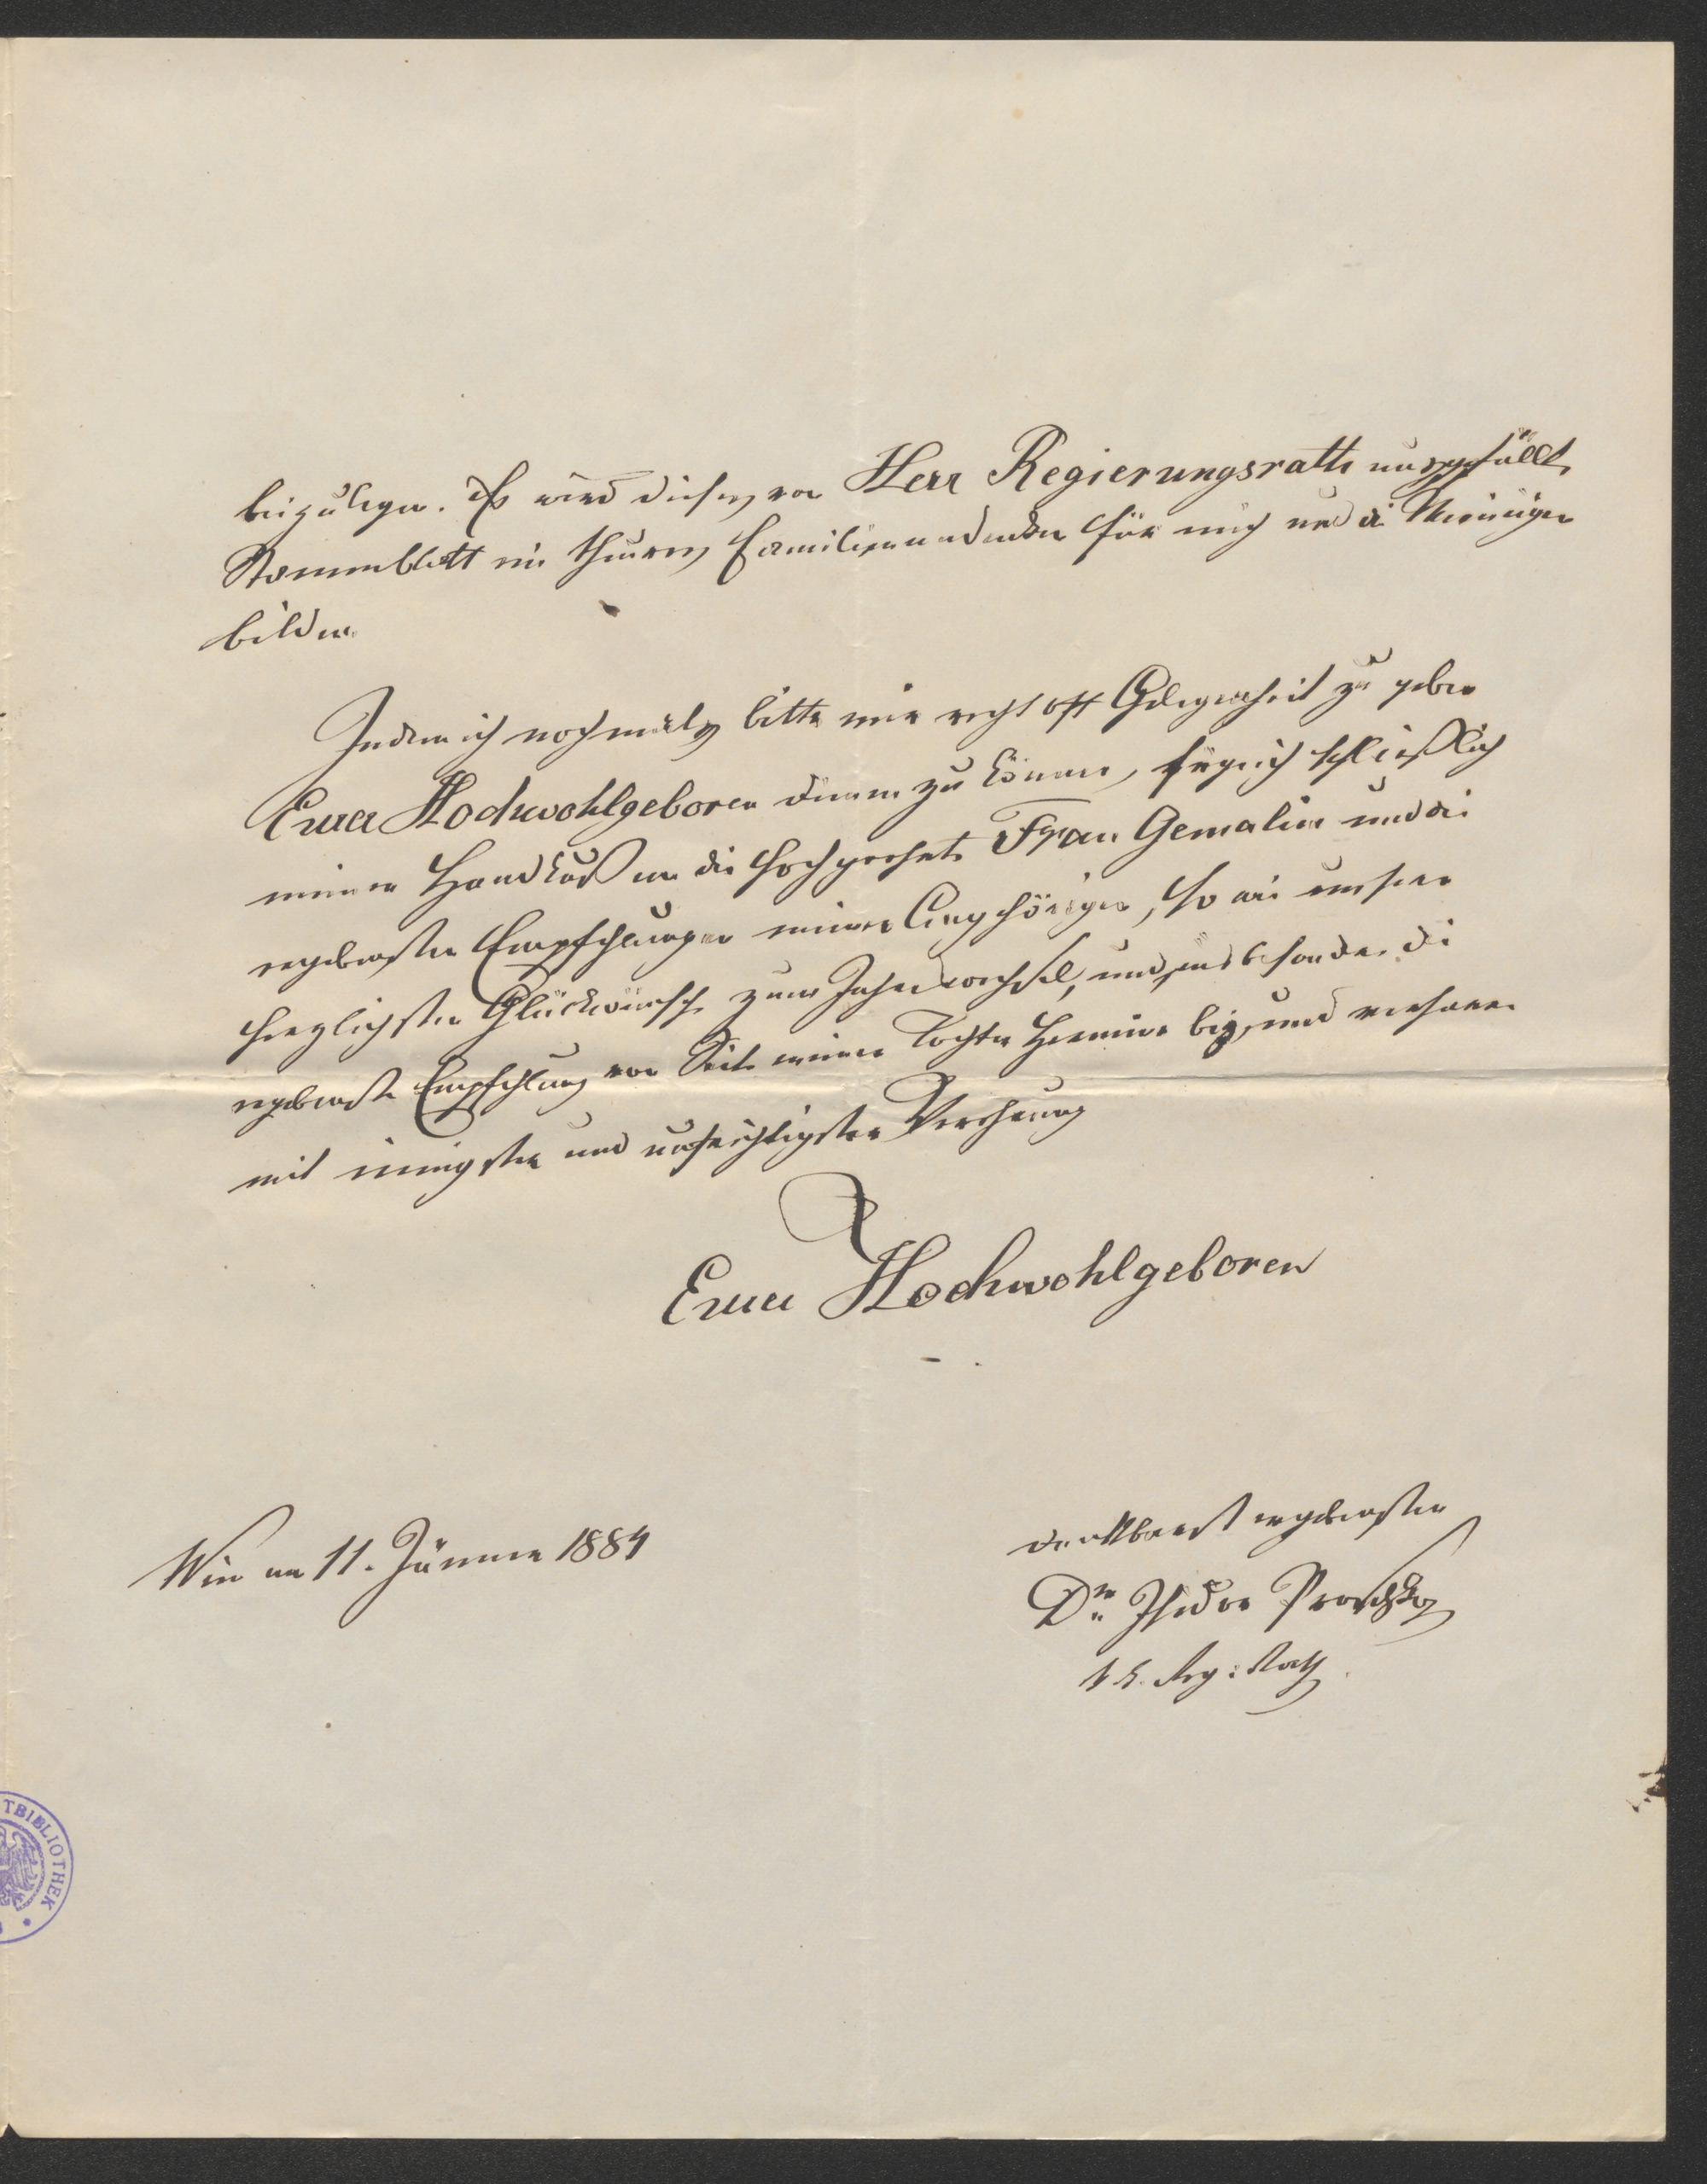 beizulegen. Es wird dieses von Herr Regierungsrath ausgefüllte
Stammblatt ein theures Familienandenken für mich und die Meinigen
bilden.
Indem ich nochmals bitte mir recht oft Gelegenheit zu geben
Euer Hochwohlgeboren dienen zu können, füge ich schließlich
meinen Handkuß an die hochgeehrte Frau Gemalin und die
ergebensten Empfehlungen meiner Angehörigen, so wie unsere
herzlichsten Glückwünsche zum Jahreswechsel, und insbesondere die
ergebenste Empfehlung von Seite meiner Tochter Hermine bei, und verharre
mit innigster und aufrichtigster Verehrung
Euer Hochwohlgeboren
Wien am 11. Jänner 1884
ergebenster
Dr. Isidor Proschko
k. k. Reg: Rath
TBIBLIOTHEK